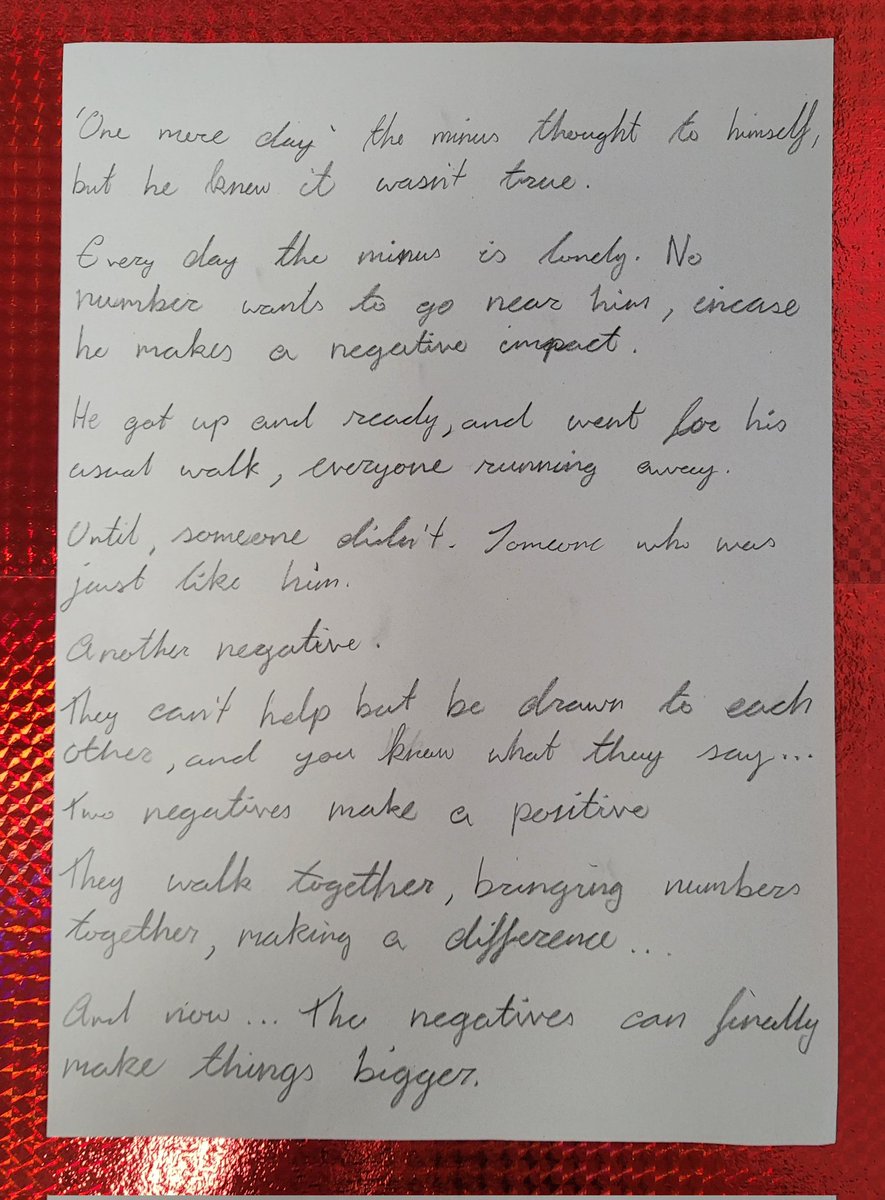 'One more day' the minus thought to himself,
but he knew it wasn't true.
Every day the minus is lonely. No
number wants to go near him, incase
he makes a negative impact.
He got up and ready, and went for his
usual walk, everyone running away.
Until, someone didn't. Someone who was
just like him.
Another negative.
They can't help but be drawn to each
other, and you know what they say...
Two negatives make a positive
They walk together, bringing numbers
together, making a difference...
And now... The negatives can finally
make things bigger.